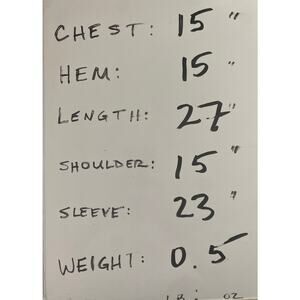 CHEST: 15"
HEM: 15"
LENGTH: 27"
SHOULDER: 15"
SLEEVE: 23"
WEIGHT: 0.5
OZ